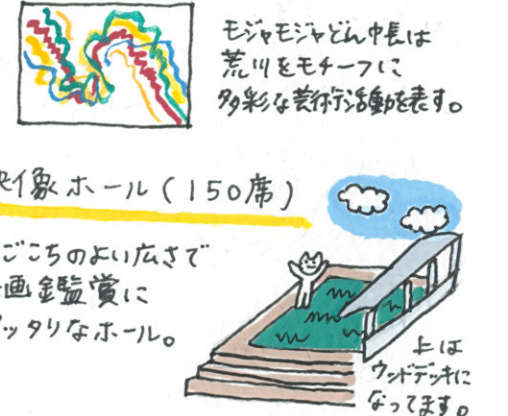 モジャモジャどん帳は
荒川をモチーフに
多彩な芸術活動を表す。
映像ホール(150席)
ごこちのよい広さで
画鑑賞に
ッタリなホール。
上は
ウッドデッキに
なってます。